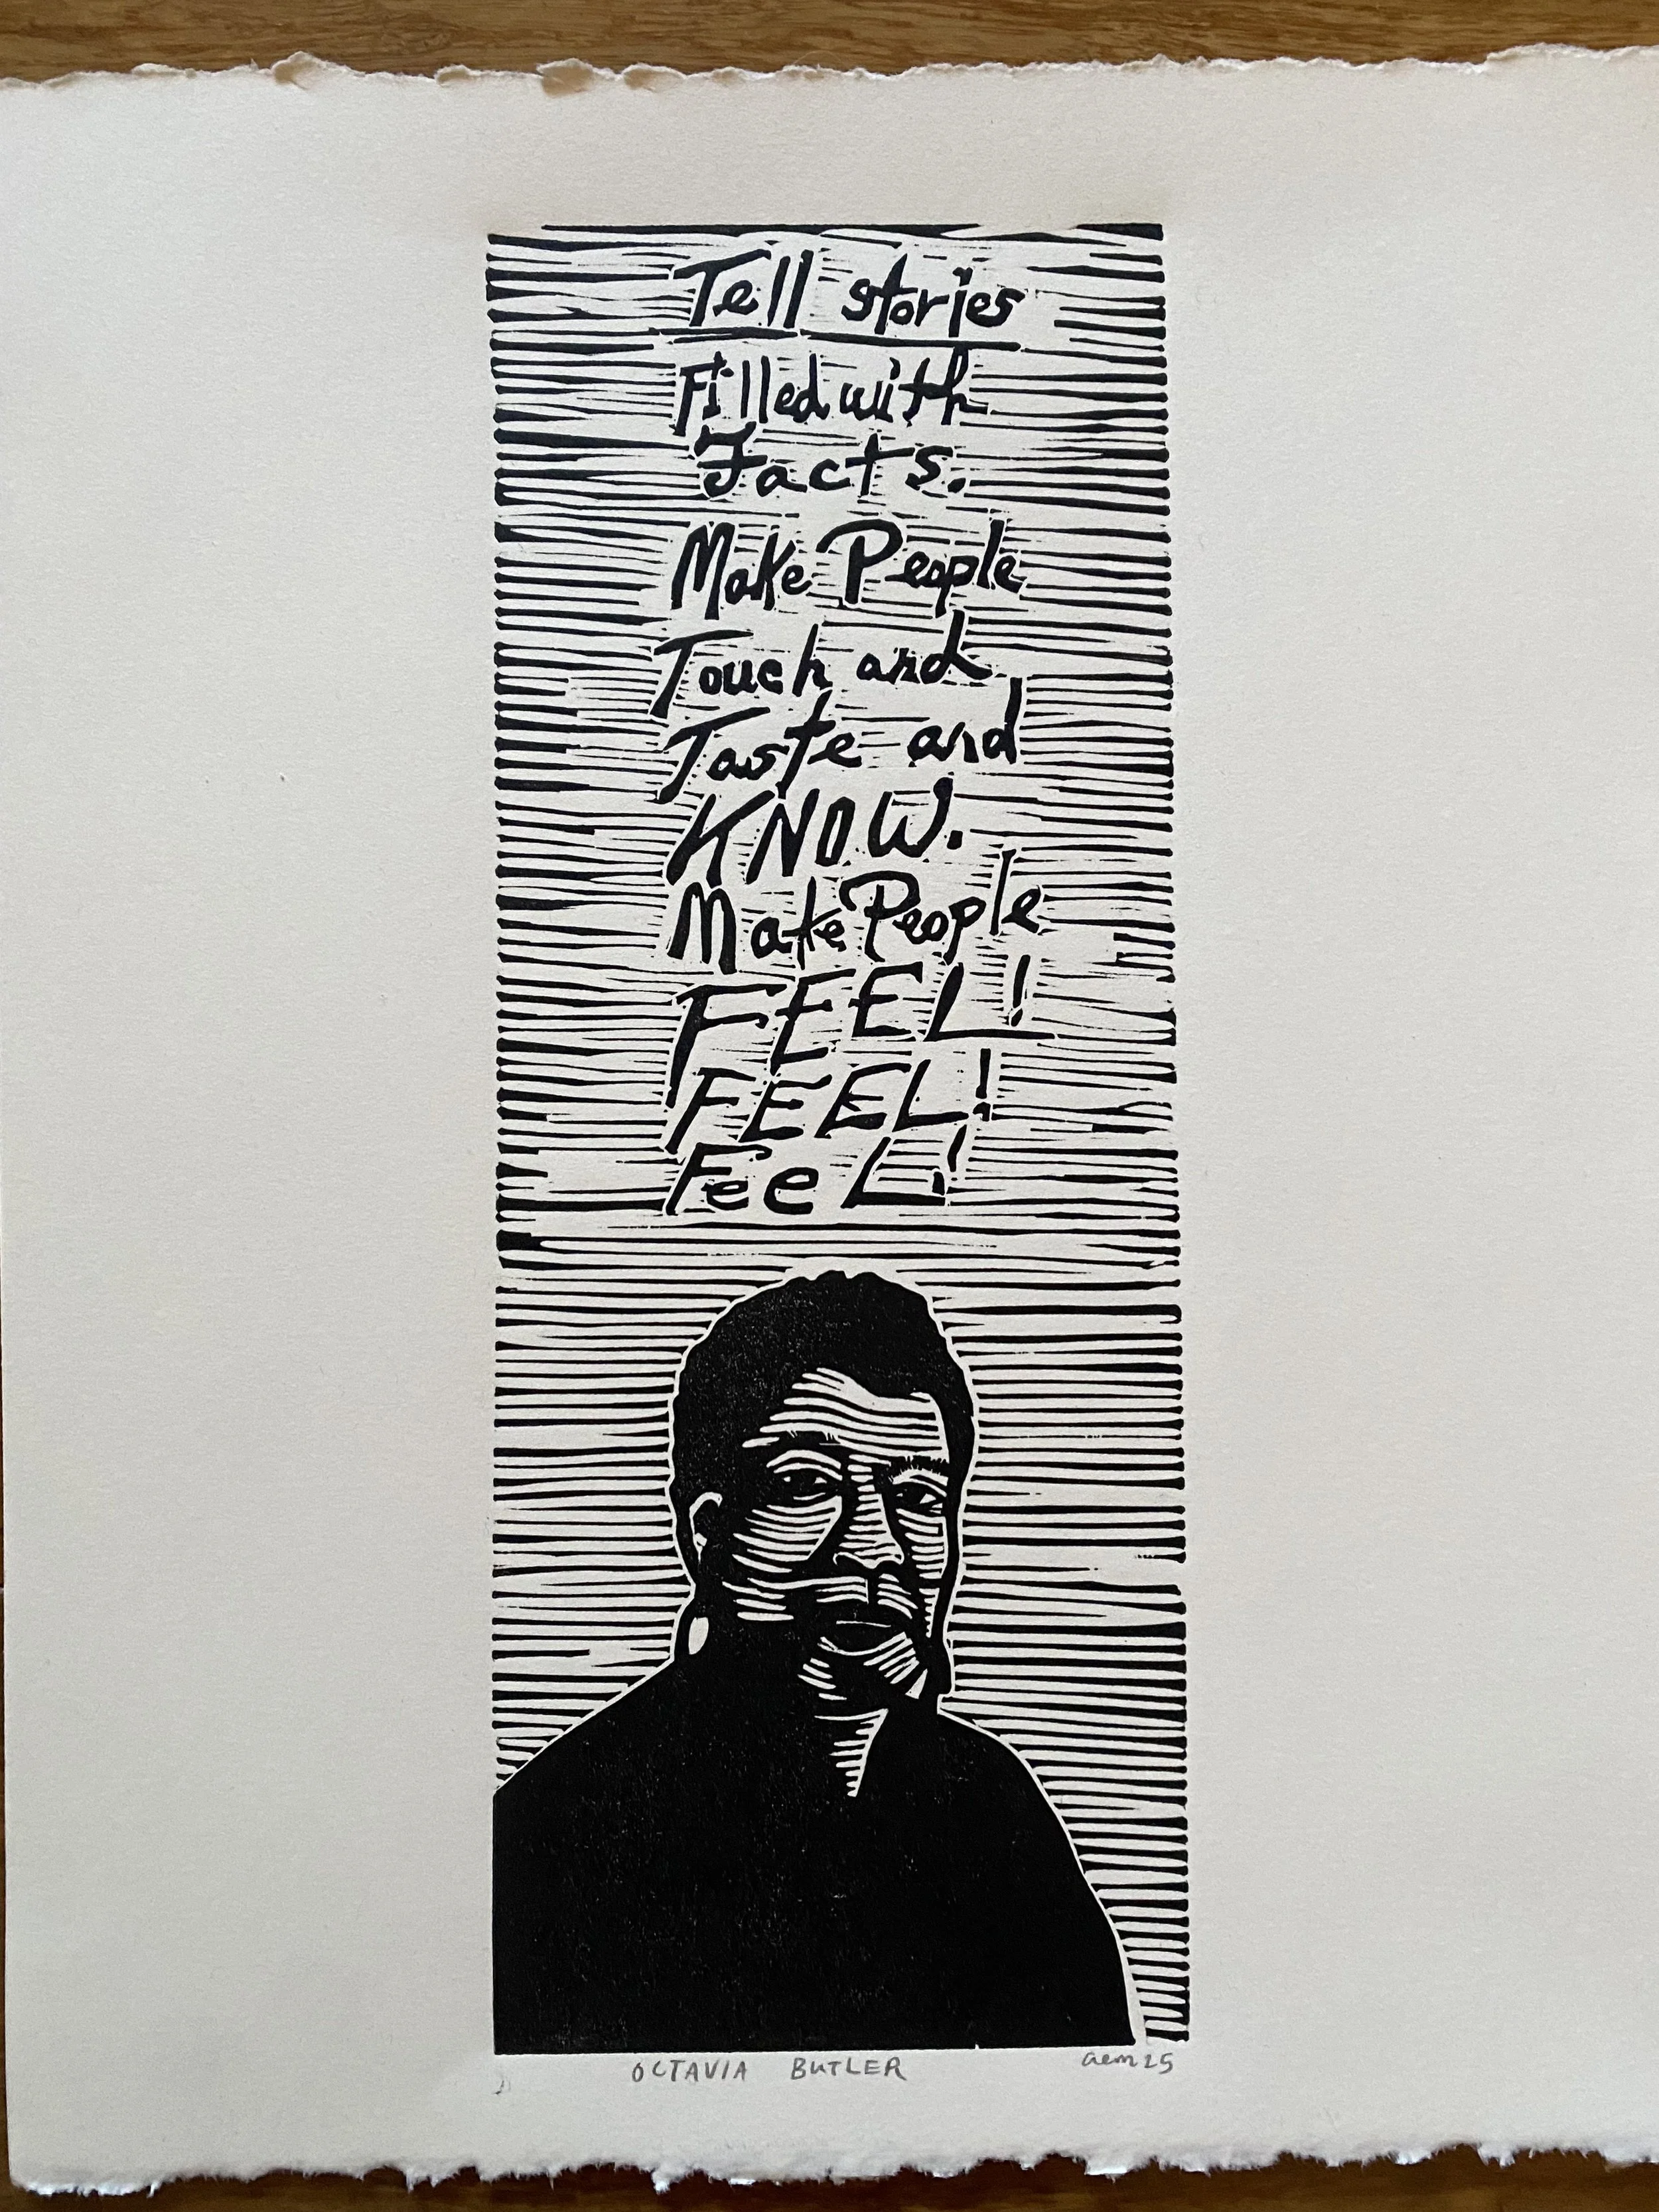 Tell stories
Filled with
Facts.
Make People
Touch and
Taste and
KNOW.
Make People
FEEL!
FEEL!
FeeL!
OCTAVIA BUTLER
aem 25